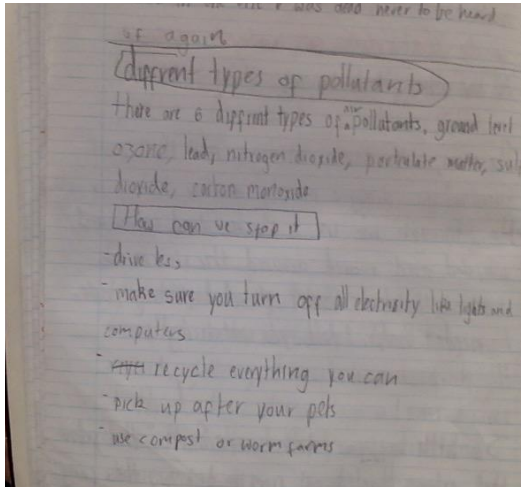 was and never to be heard
of again
diffrent types of pollutants
there are 6 diffrent types of air pollatants, ground level
ozone, lead, nitrogen dioxide, particulate matter, sul
dioxide, carbon monoxide
How can we stop it
-drive less
-make sure you turn off all electrisity like lights and
computers
- recycle everything you can
-pick up after your pets
-use compost or worm farms